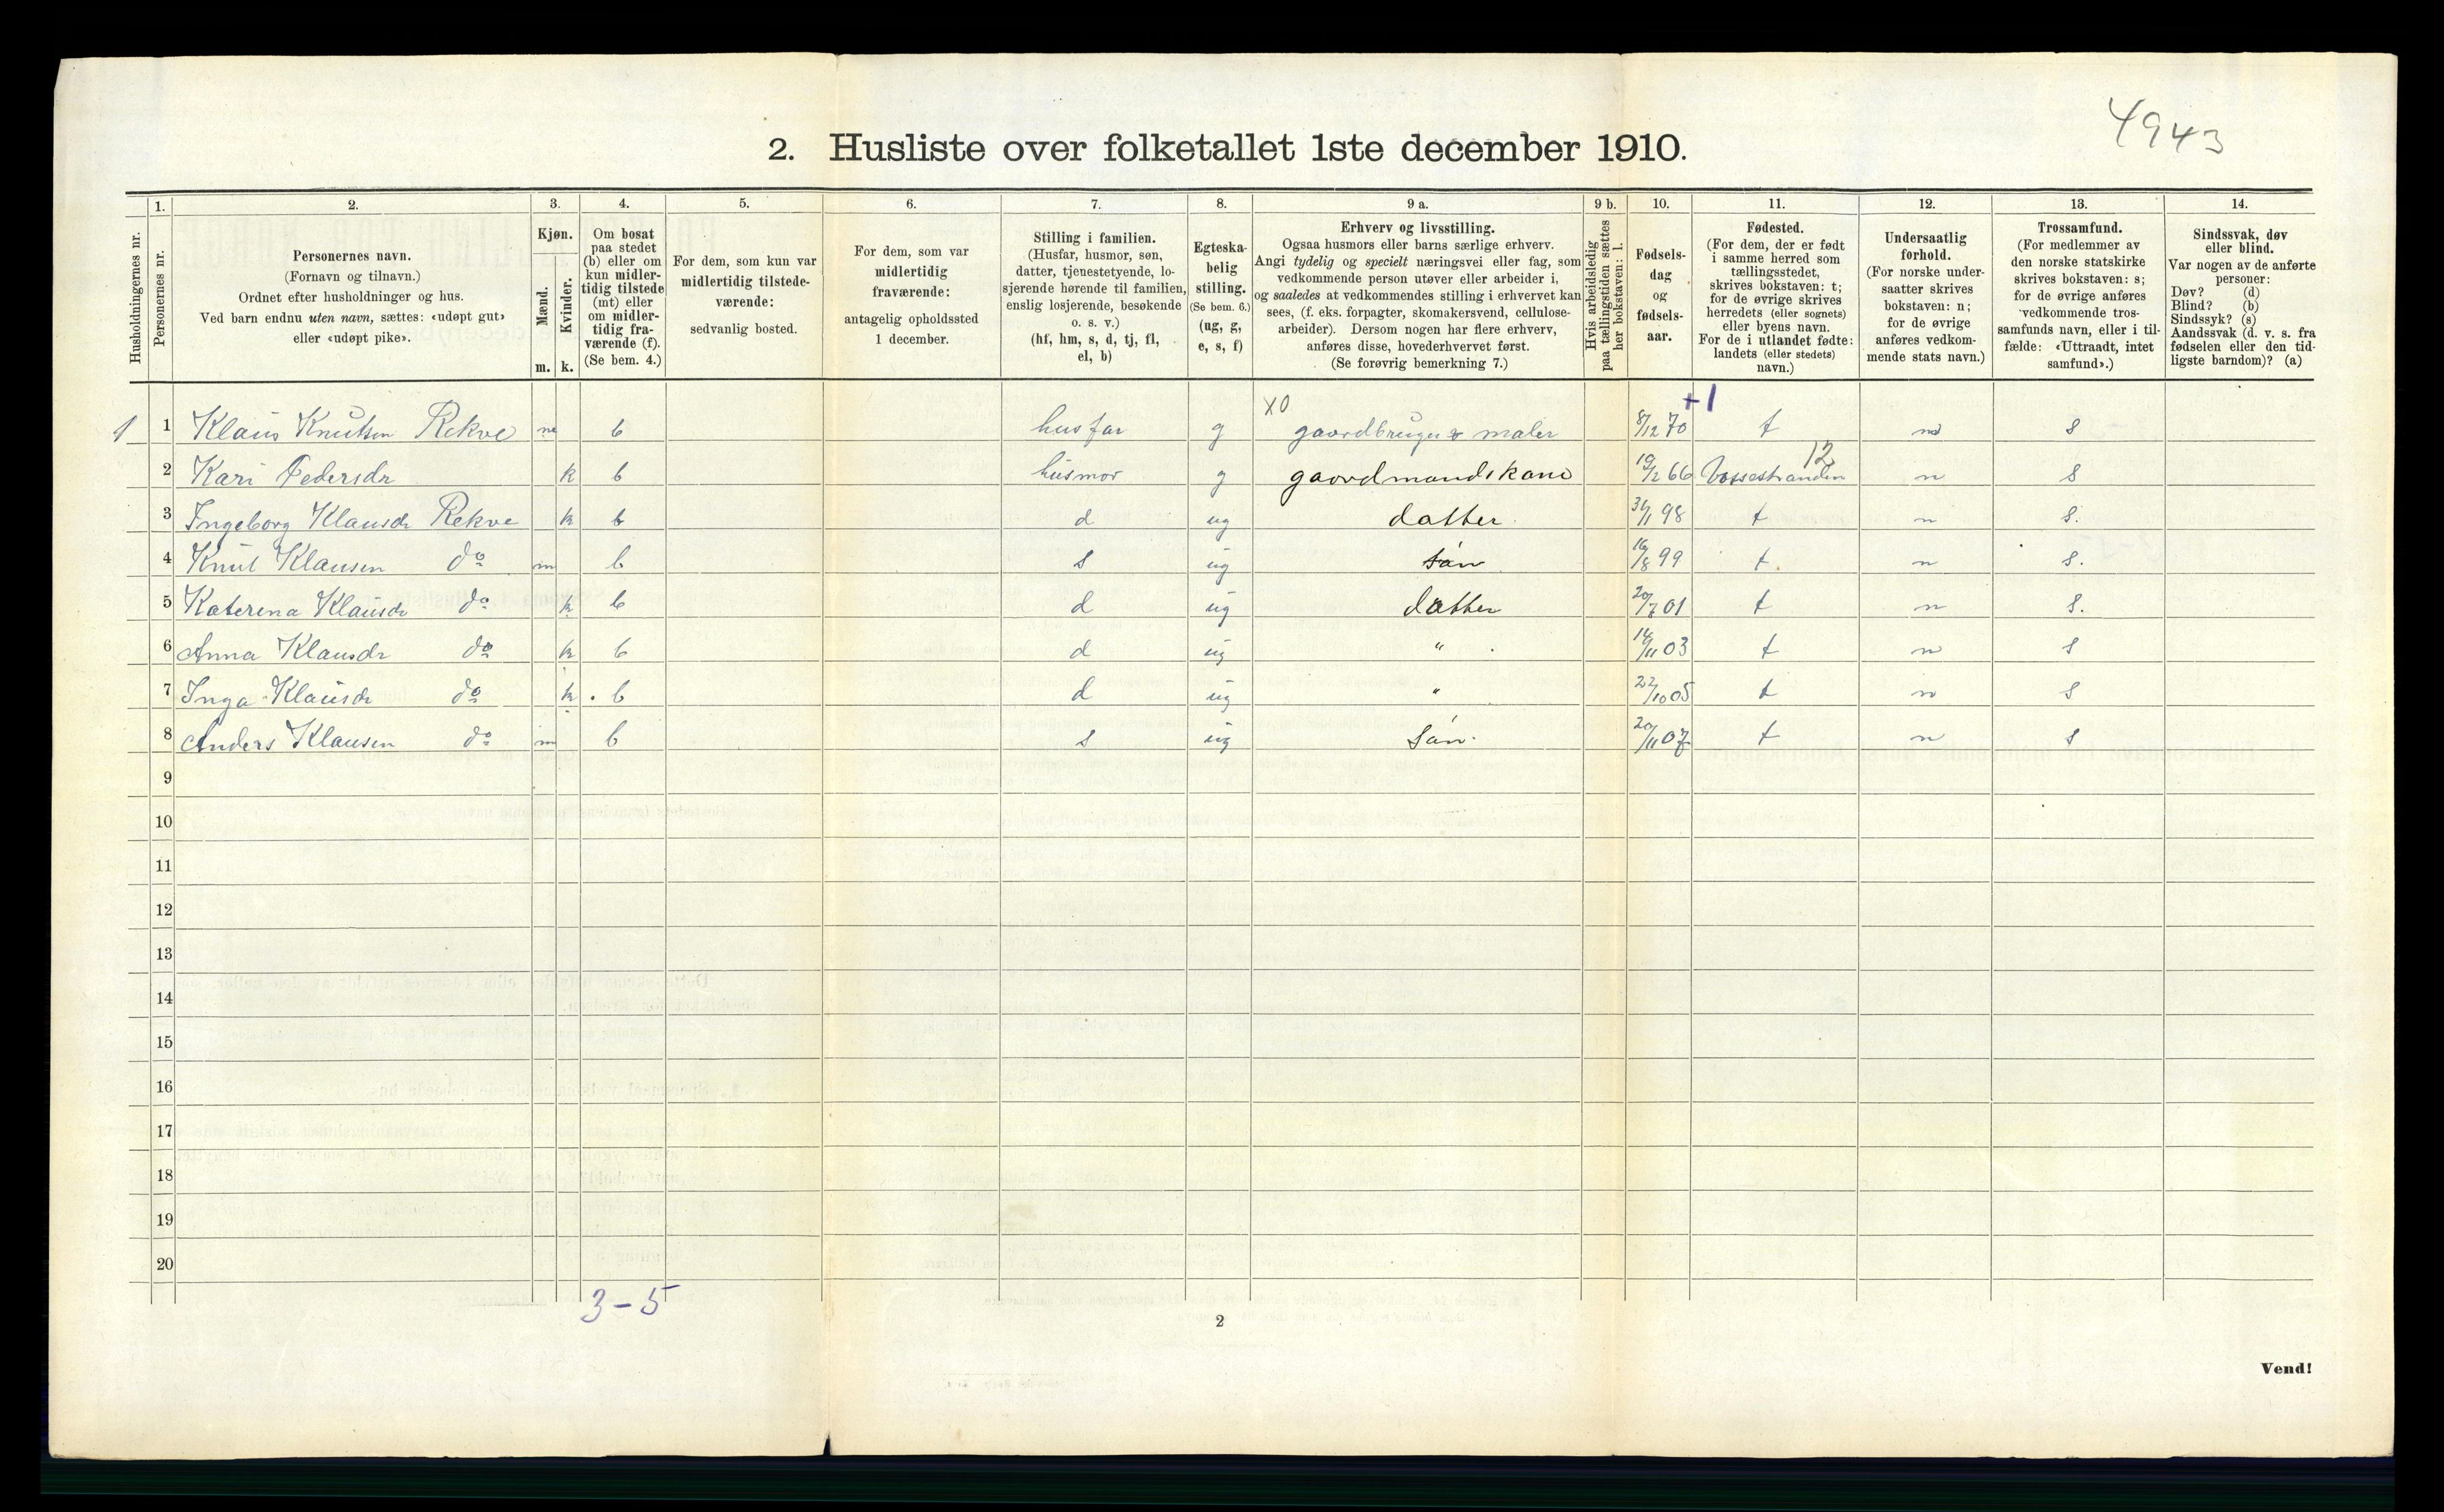 4943
2. Husliste over folketallet 1ste december 1910.
Husholdningernes nr.
1.
Personernes nr.
2.
Personernes navn.
(Fornavn og tilnavn.)
Ordnet efter husholdninger og hus.
Ved barn endnu uten navn, sættes: «udøpt gut»
eller «udøpt pike».
3.
Kjøn.
Mænd.
Kvinder.
m. k.
4.
Om bosat
paa stedet
(b) eller om
kun midler-
tidig tilstede
(mt) eller
om midler-
tidig fra-
værende (f).
(Se bem. 4.)
5.
For dem, som kun var
midlertidig tilstede-
værende:
sedvanlig bosted.
6.
For dem, som var
midlertidig
fraværende:
antagelig opholdssted
1 december.
7.
Stilling i familien.
(Husfar, husmor, søn,
datter, tjenestetyende, lo-
sjerende hørende til familien,
enslig losjerende, besøkende
o. s. v.)
(hf, hm, s, d, tj, fl,
el, b)
8.
Egteska-
belig
stilling.
(Se bem. 6.)
(ug, g,
e, s, f)
9 a.
Erhverv og livsstilling.
Ogsaa husmors eller barns særlige erhverv.
Angi tydelig og specielt næringsvei eller fag, som
vedkommende person utøver eller arbeider i,
og saaledes at vedkommendes stilling i erhvervet kan
sees, (f. eks. forpagter, skomakersvend, cellulose-
arbeider). Dersom nogen har flere erhverv,
anføres disse, hovederhvervet først.
(Se forøvrig bemerkning 7.)
9 b.
Hvis arbeidsledig
paa tællingstiden sættes
her bokstaven: l.
10.
Fødsels-
dag
og
fødsels-
aar.
11.
Fødested.
(For dem, der er født
i samme herred som
tællingsstedet,
skrives bokstaven: t;
for de øvrige skrives
herredets (eller sognets)
eller byens navn.
For de i utlandet fødte:
landets (eller stedets)
navn.)
12.
Undersaatlig
forhold.
(For norske under-
saatter skrives
bokstaven: n;
for de øvrige
anføres vedkom-
mende stats navn.)
13.
Trossamfund.
(For medlemmer av
den norske statskirke
skrives bokstaven: s;
for de øvrige anføres
vedkommende tros-
samfunds navn, eller i til-
fælde: «Uttraadt, intet
samfund».)
14.
Sindssvak, døv
eller blind.
Var nogen av de anførte
personer:
Døv? (d)
Blind? (b)
Sindssyk? (s)
Aandssvak (d. v. s. fra
fødselen eller den tid-
ligste barndom)? (a)
X0 +1
1 1 Klaus Knutsen Rekve m b husfar g gaardbruger & maler 8/12 70 t n s
12
2 Kari Pedersdr k b husmor g gaardmandskone 19/2 66 Vossestranden n s
3 Ingeborg Klausdr Rekve k b d ug datter 31/1 98 t n s.
4 Knut Klausen do m b s ug søn 16/8 99 t. n s.
5 Katerina Klausdr do k b d ug datter 20/7 01 t n s.
6 Anna Klausdr do k b d ug " 14/11 03 t n s
7 Inga Klausdr do k b d ug " 22/10 05 t n s
8 Anders Klausen do m b s ug søn 20/11 07 t n s
9
10
11
12
13
14
15
16
17
18
19
20
3-5
2
Vend!